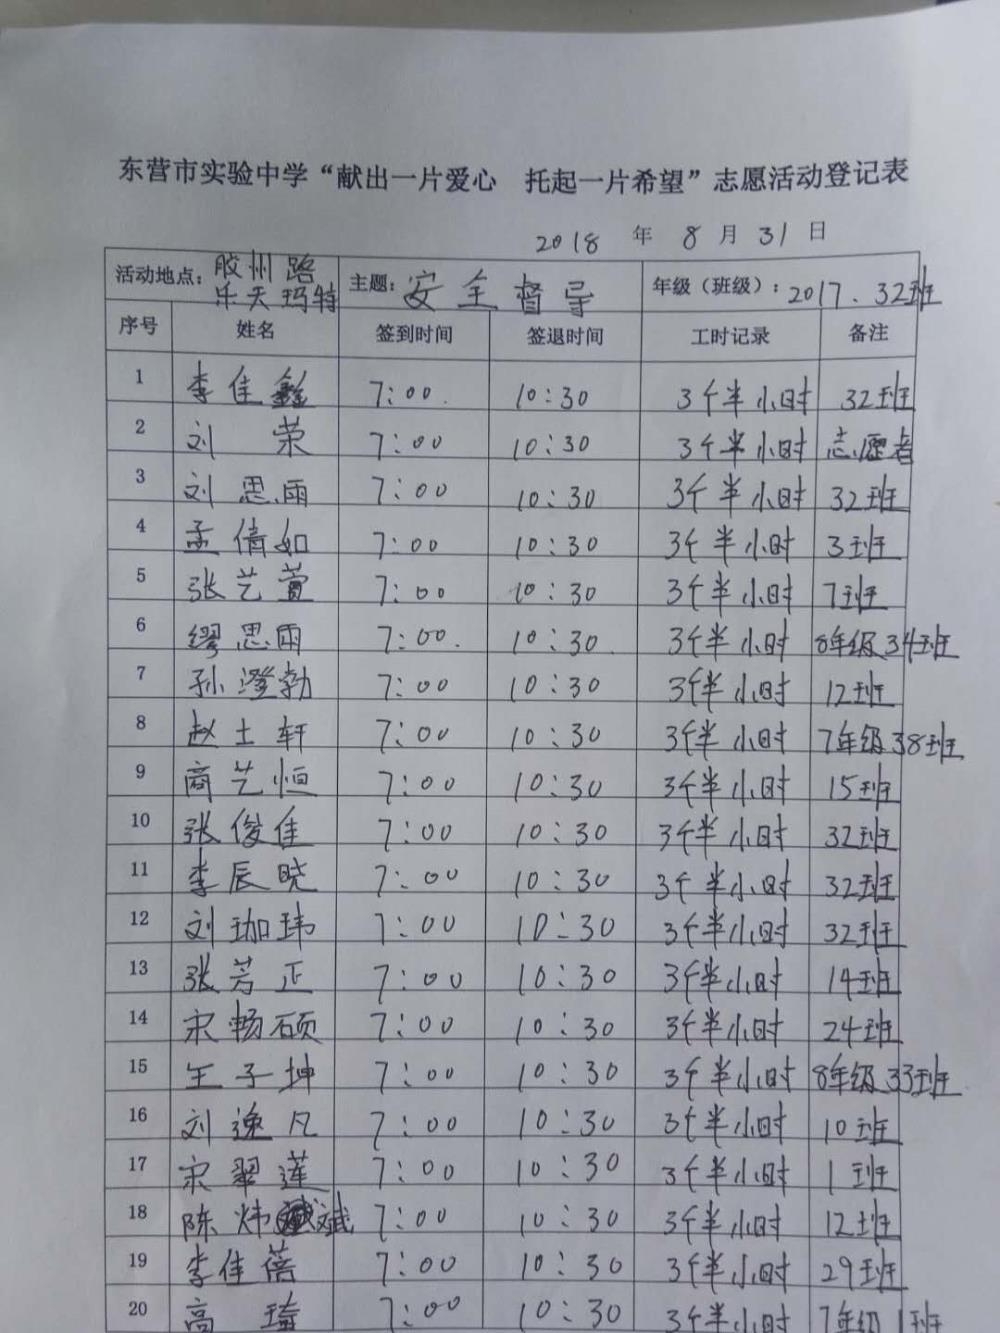 东营市实验中学“献出一片爱心 托起一片希望”志愿活动登记表
2018 年 8 月 31 日
活动地点：胶州路乐天玛特 主题：安全督导 年级（班级）：2017.32班
序号 姓名 签到时间 签退时间 工时记录 备注
1 李佳鑫 7:00 10:30 3个半小时 32班
2 刘荣 7:00 10:30 3个半小时 志愿者
3 刘思雨 7:00 10:30 3个半小时 32班
4 孟倩如 7:00 10:30 3个半小时 3班
5 张艺萱 7:00 10:30 3个半小时 7班
6 缪思雨 7:00 10:30 3个半小时 8年级34班
7 孙澄勃 7:00 10:30 3个半小时 12班
8 赵士轩 7:00 10:30 3个半小时 7年级38班
9 商艺恒 7:00 10:30 3个半小时 15班
10 张俊佳 7:00 10:30 3个半小时 32班
11 李辰晓 7:00 10:30 3个半小时 32班
12 刘珈玮 7:00 10:30 3个半小时 32班
13 张芳正 7:00 10:30 3个半小时 14班
14 宋畅硕 7:00 10:30 3个半小时 24班
15 王子坤 7:00 10:30 3个半小时 8年级33班
16 刘逸凡 7:00 10:30 3个半小时 10班
17 宋翠莲 7:00 10:30 3个半小时 1班
18 陈炜斌 7:00 10:30 3个半小时 12班
19 李佳蓓 7:00 10:30 3个半小时 29班
20 高琦 7:00 10:30 3个半小时 7年级1班